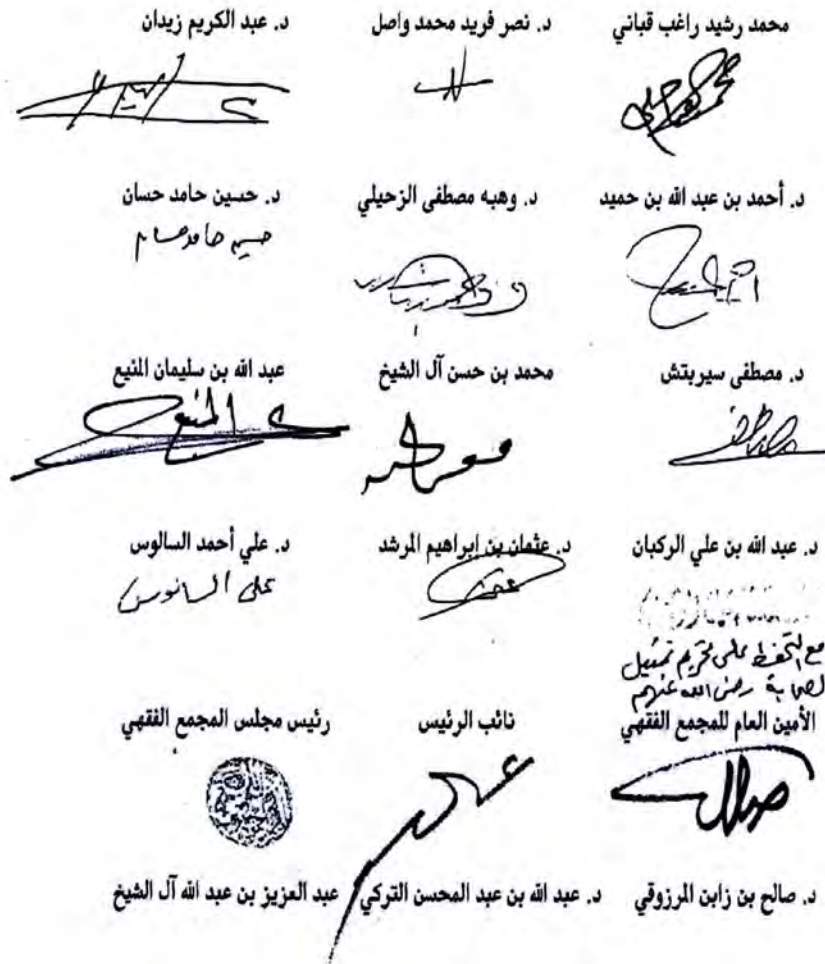 محمد رشيد راغب قباني د. نصر فريد محمد واصل د. عبد الكريم زيدان
د. أحمد بن عبد الله بن حميد د. وهبه مصطفى الزحيلي د. حسين حامد حسان
حسين حامد حسان
د. مصطفى سيربتش محمد بن حسن آل الشيخ عبد الله بن سليمان المنيع
المنيع
د. عبد الله بن علي الركبان د. عثمان بن إبراهيم المرشد د. علي أحمد السالوس
علي السالوس
مع التحفظ على تحريم تمثيل
الصحابة رضي الله عنهم
الأمين العام للمجمع الفقهي نائب الرئيس رئيس مجلس المجمع الفقهي
د. صالح بن زابن المرزوقي د. عبد الله بن عبد المحسن التركي عبد العزيز بن عبد الله آل الشيخ